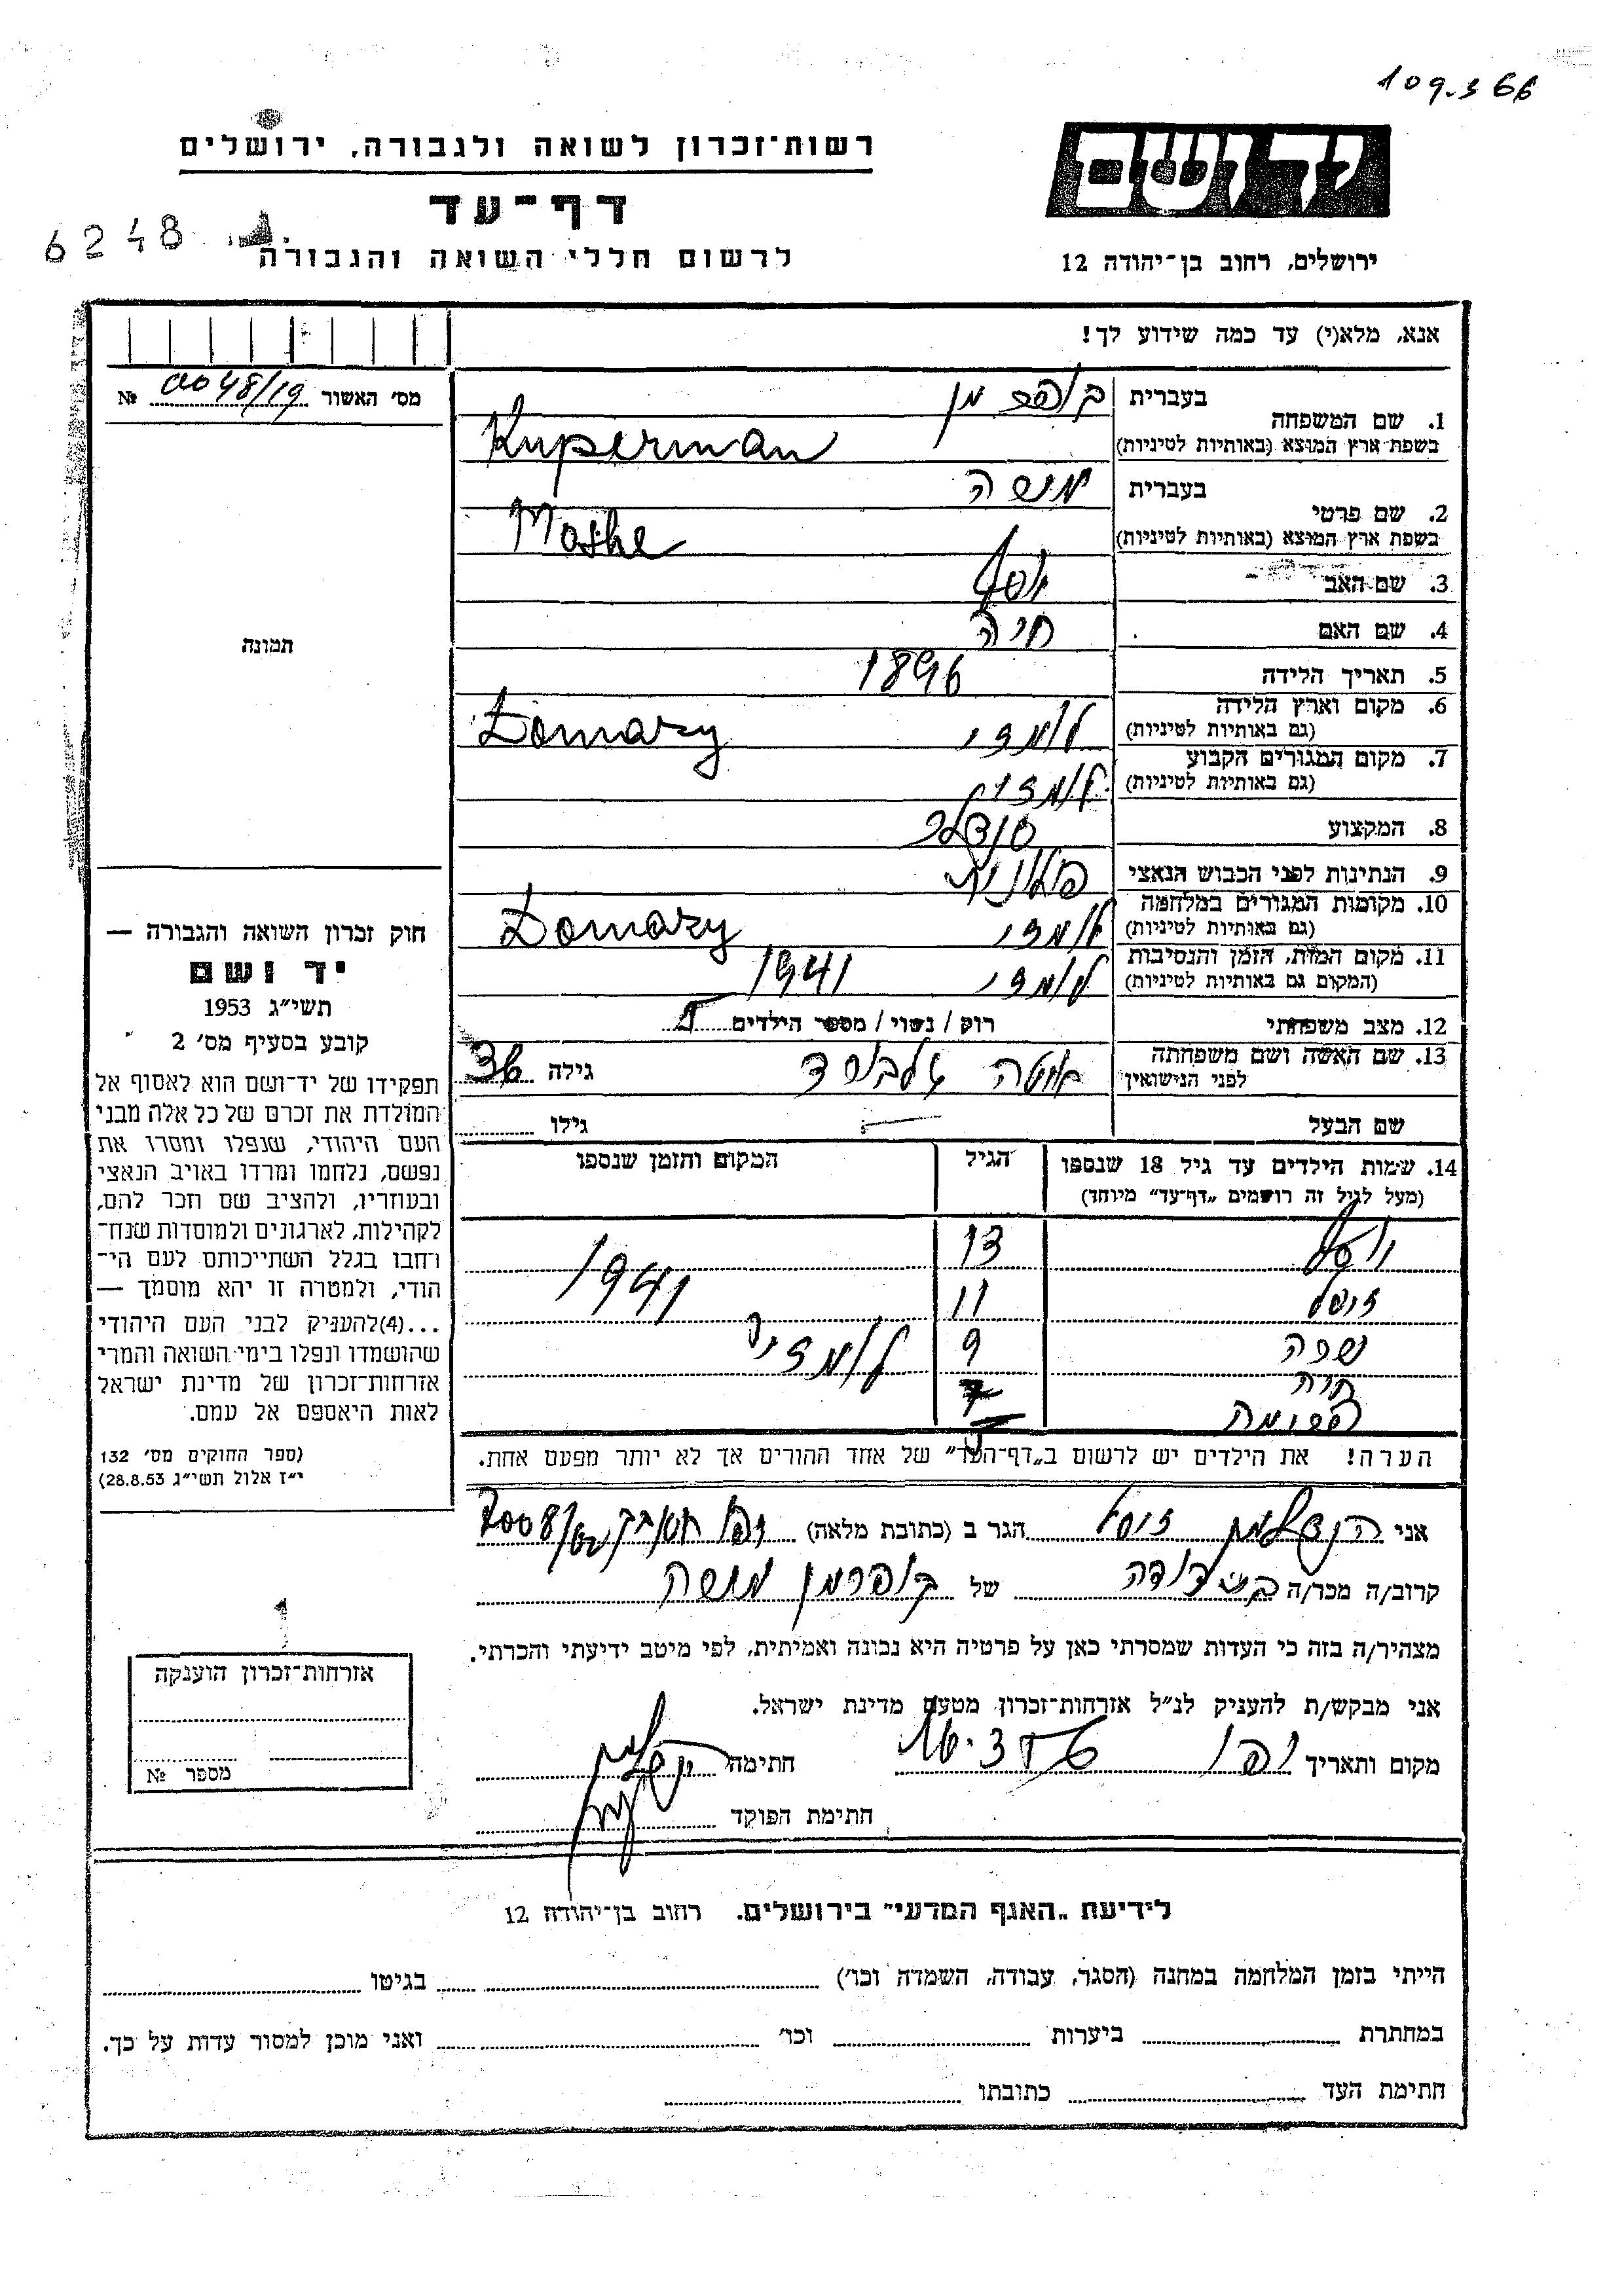 109.366
יד ושם
רשות־זכרון לשואה ולגבורה, ירושלים
דף־עד
6248
ירושלים, רחוב בן־יהודה 12
לרשום חללי השואה והגבורה
אנא, מלא(י) עד כמה שידוע לך!
מס׳ האשור 0048/19 №
1. שם המשפחה
בעברית קופרמן
בשפת ארץ המוצא (באותיות לטיניות) Kuperman
2. שם פרטי
בעברית משה
בשפת ארץ המוצא (באותיות לטיניות) Moshe
3. שם האב יוסף
4. שם האם חיה
5. תאריך הלידה 1896
6. מקום וארץ הלידה
(גם באותיות לטיניות) לומזי Łomazy
7. מקום המגורים הקבוע
(גם באותיות לטיניות) לומזי
8. המקצוע סנדלר
9. הנתינות לפני הכבוש הנאצי פולנית
10. מקומות המגורים במלחמה
(גם באותיות לטיניות) לומזי Łomazy
11. מקום המות, הזמן והנסיבות
(המקום גם באותיות לטיניות) לומזי 1941
12. מצב משפחתי רוק / נשוי / מספר הילדים
13. שם האשה ושם משפחתה
לפני הנישואין
גילה
שם הבעל
גילו
14. שמות הילדים עד גיל 18 שנספו
(מעל לגיל זה רושמים „דף־עד״ מיוחד)
הגיל
המקום והזמן שנספו
יוסף 13
11 1941
9 לומזי
חיה 7
הערה! את הילדים יש לרשום ב„דף־העד״ של אחד ההורים אך לא יותר מפעם אחת.
אני
הגר ב (כתובת מלאה)
קרוב/ה מכר/ה בת דודה של קופרמן משה
מצהיר/ה בזה כי העדות שמסרתי כאן על פרטיה היא נכונה ואמיתית, לפי מיטב ידיעתי והכרתי.
אני מבקש/ת להעניק לנ״ל אזרחות־זכרון מטעם מדינת ישראל.
מקום ותאריך יפו
חתימה
חתימת הפוקד
תמונה
חוק זכרון השואה והגבורה —
יד ושם
תשי״ג 1953
קובע בסעיף מס׳ 2
תפקידו של יד־ושם הוא לאסוף אל
המולדת את זכרם של כל אלה מבני
העם היהודי, שנפלו ומסרו את
נפשם, נלחמו ומרדו באויב הנאצי
ובעוזריו, ולהציב שם וזכר להם,
לקהילות, לארגונים ולמוסדות שנח־
רחבו בגלל השתייכותם לעם הי־
הודי, ולמטרה זו יהא מוסמך —
...(4) להעניק לבני העם היהודי
שהושמדו ונפלו בימי השואה והמרי
אזרחות־זכרון של מדינת ישראל
לאות היאספם אל עמם.
(ספר החוקים מס׳ 132
י״ז אלול תשי״ג 28.8.53)
1
אזרחות־זכרון הוענקה
מספר №
לידיעת „האגף המדעי״ בירושלים, רחוב בן־יהודה 12
הייתי בזמן המלחמה במחנה (הסגר, עבודה, השמדה וכו׳) בגיטו
במחתרת ביערות וכו׳ ואני מוכן למסור עדות על כך.
חתימת העד כתובתו